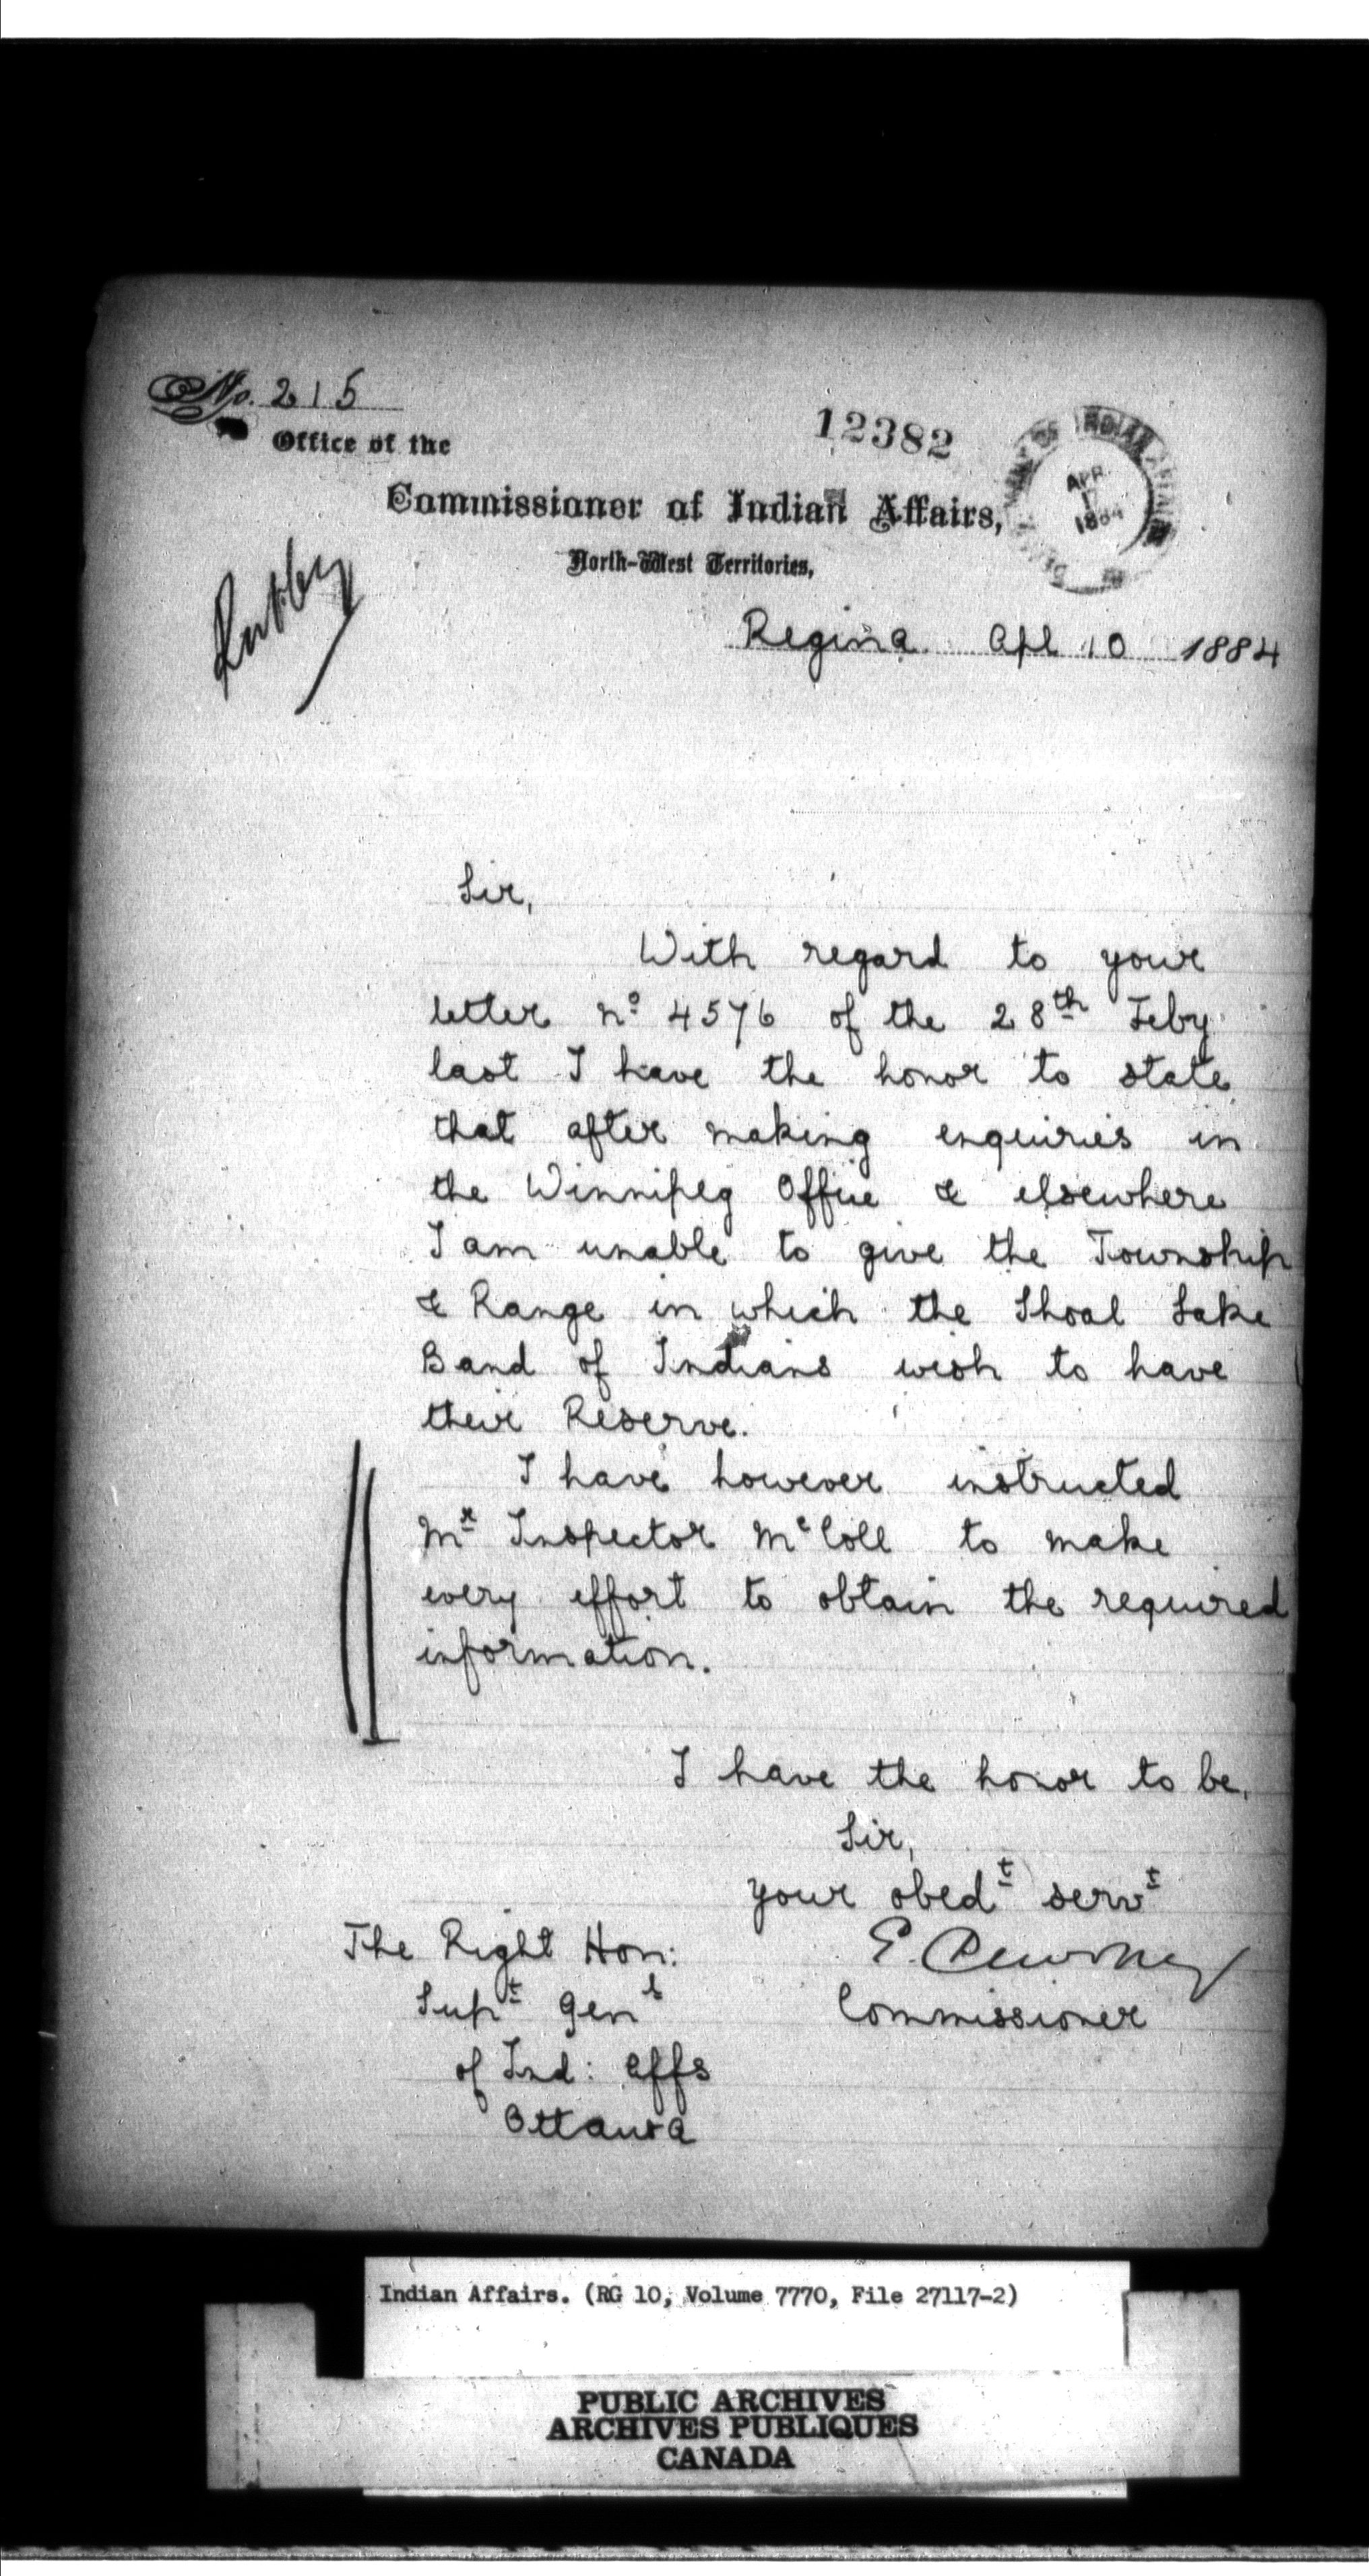 No. 215
Office of the
12382
Commissioner of Indian Affairs,
North-West Territories,
DEPARTMENT OF INDIAN AFFAIRS
APR 17
1884
Regina Apl 10 1884
Sir,
With regard to your
letter No 4576 of the 28th Feby
last I have the honor to state
that after making enquiries in
the Winnipeg Office & elsewhere
I am unable to give the Township
& Range in which the Shoal Lake
Band of Indians wish to have
their Reserve.
I have however instructed
Mr Inspector McColl to make
every effort to obtain the required
information.
I have the honor to be,
Sir,
your obedt servt
E. Dewdney
Commissioner
The Right Hon:
Supt Genl
of Ind: Affs
Ottawa
Indian Affairs. (RG 10, Volume 7770, File 27117-2)
PUBLIC ARCHIVES
ARCHIVES PUBLIQUES
CANADA